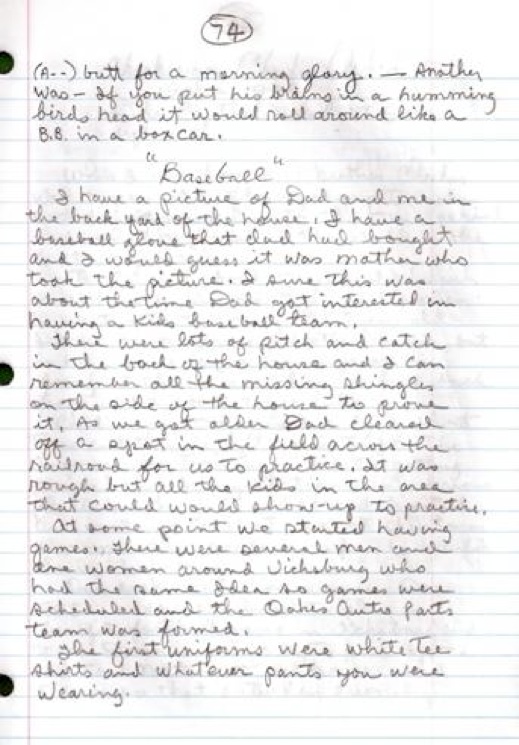 74
(A--) butt for a morning glory. — Another
was - If you put his brains in a humming
birds head it would roll around like a
B.B. in a boxcar.
"Baseball"
I have a picture of Dad and me in
the back yard of the house. I have a
baseball glove that dad had bought
and I would guess it was mother who
took the picture. I sure this was
about the time Dad got interested in
having a kids baseball team.
There were lots of pitch and catch
in the back of the house and I can
remember all the missing shingles
on the side of the house to prove
it. As we got older Dad cleared
off a spot in the field across the
railroad for us to practice. It was
rough but all the kids in the area
that could would show-up to practice.
At some point we started having
games. There were several men and
one women around Vicksburg who
had the same Idea so games were
scheduled and the Oakes Auto Parts
team was formed.
The first uniforms were white Tee
shirts and whatever pants you were
wearing.